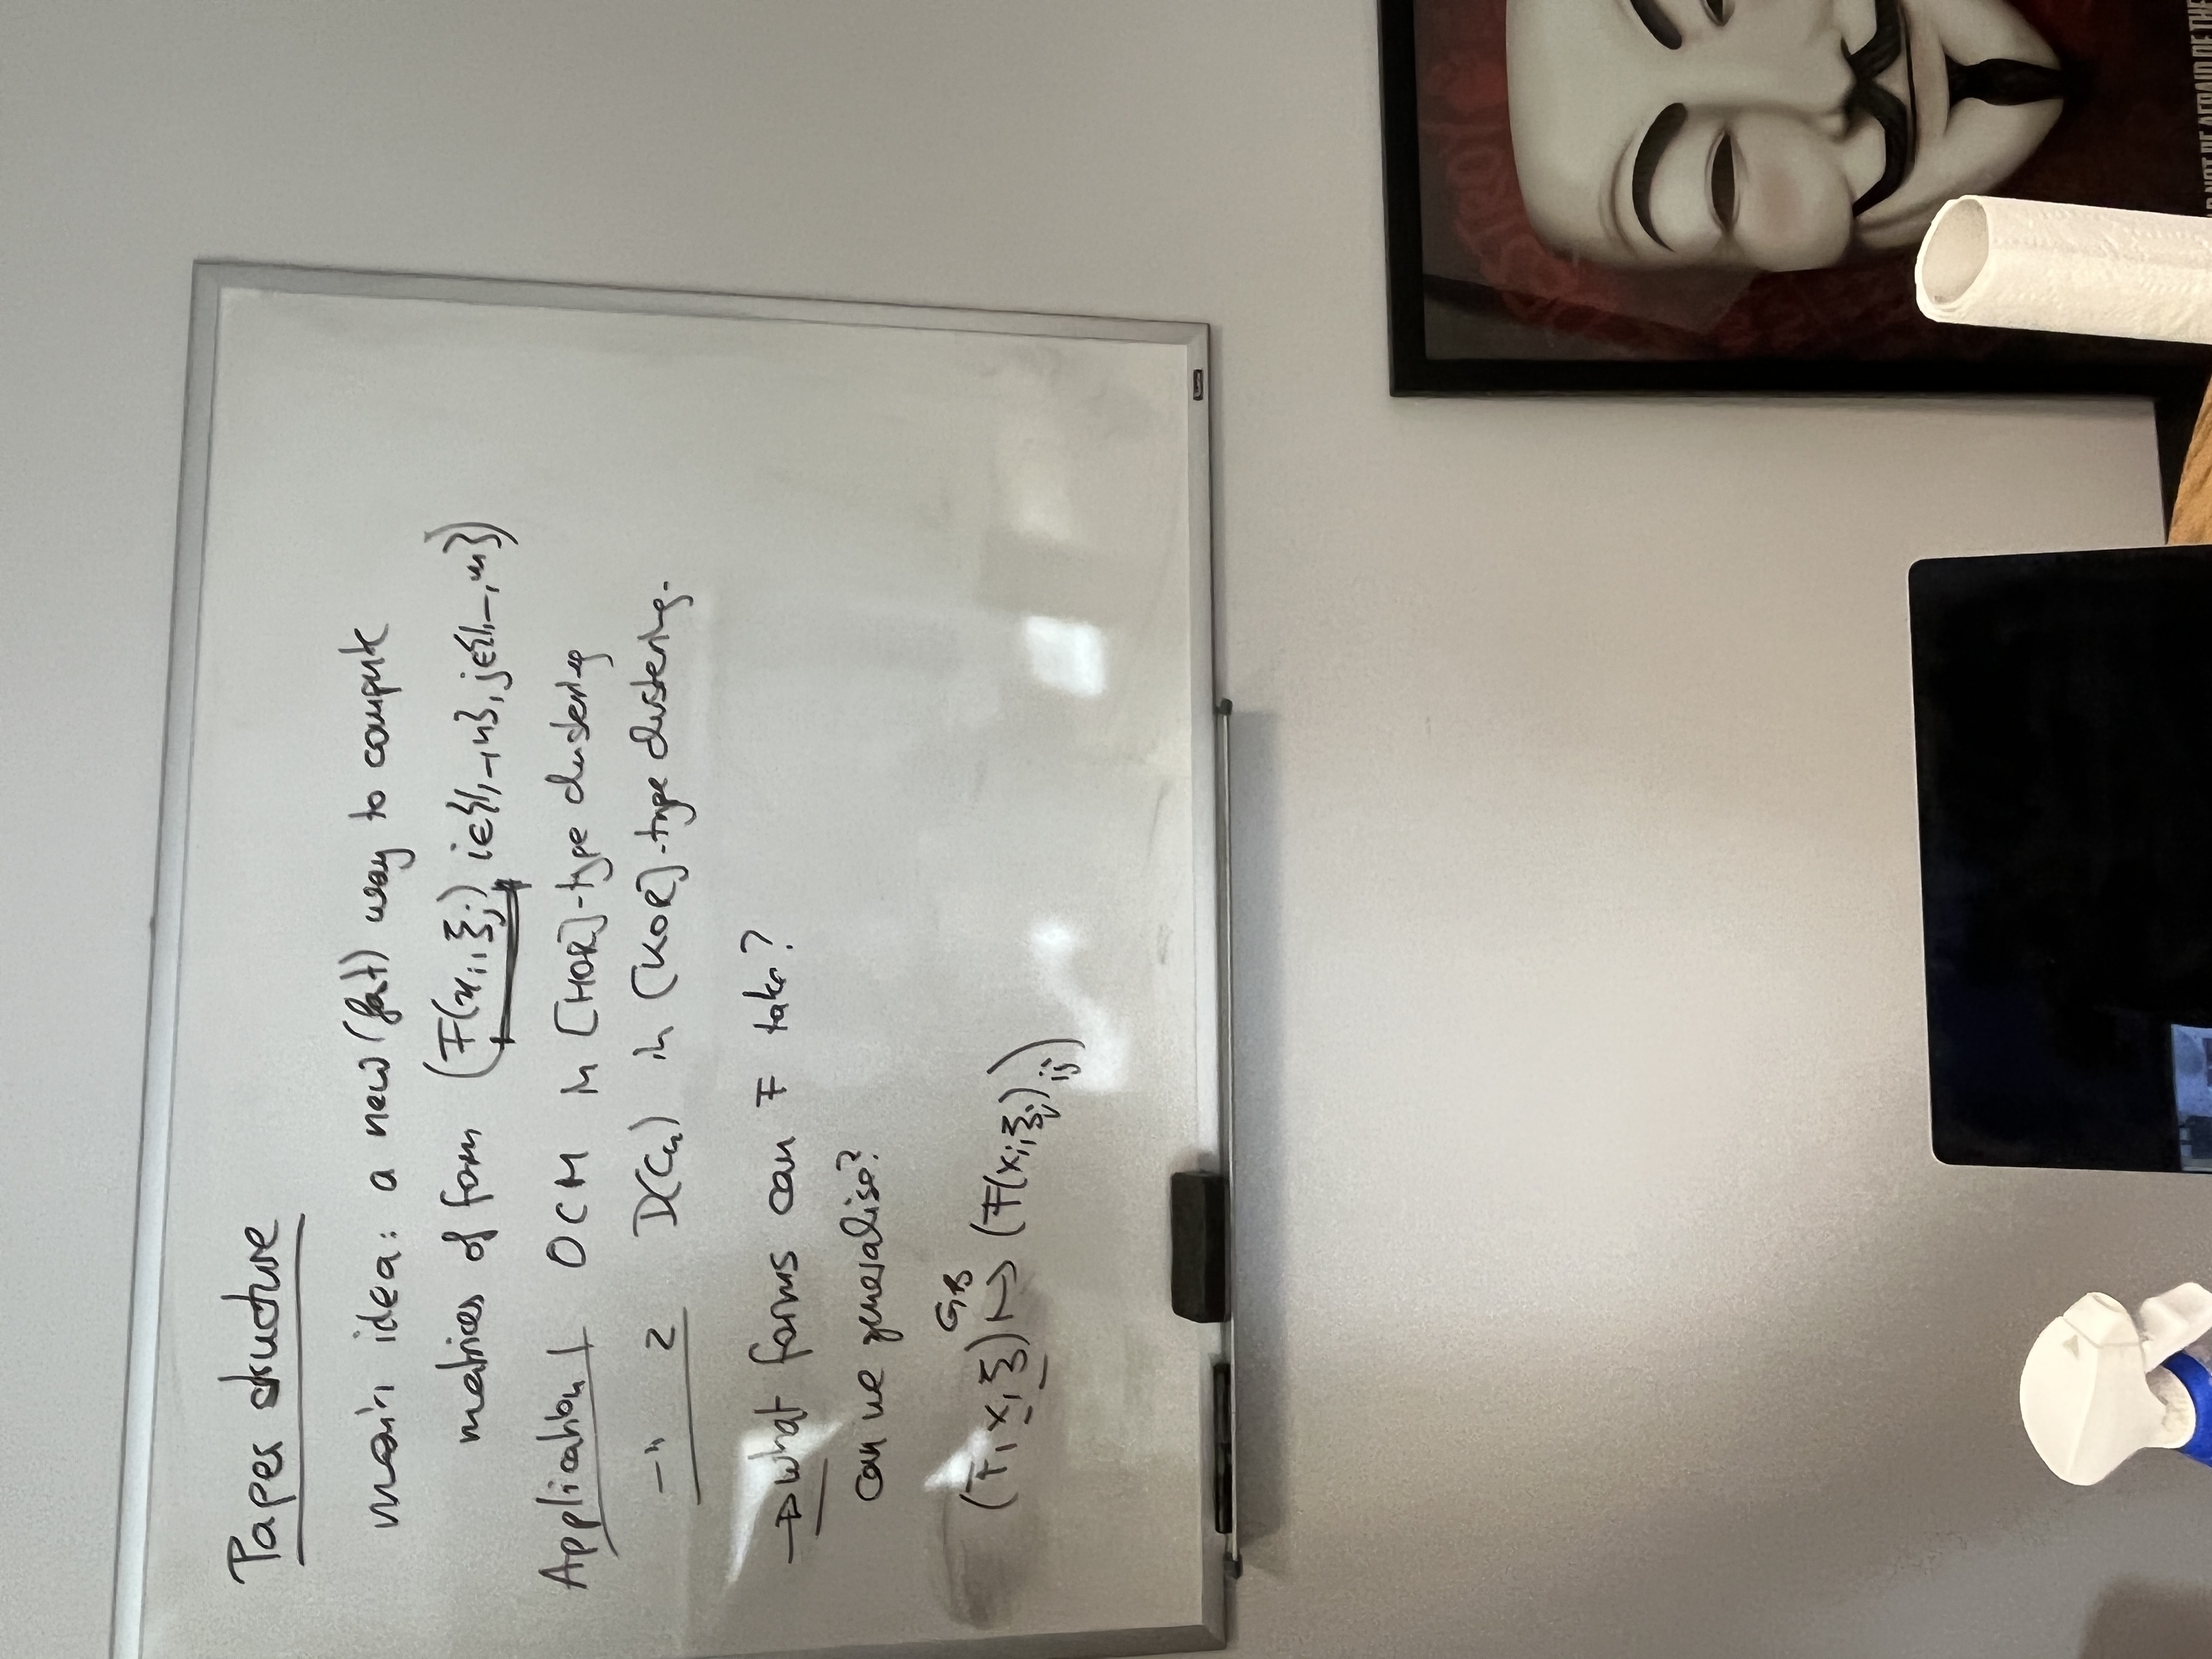 Paper structure
main idea: a new (fat) way to compute
matrices of form (F(xi, ξj) i∈{1,–,n}, j∈{1,–,m})
Application 1 OCM in [HOR]-type clustering
–"– 2 D(Cn) in [KOR]-type clustering.
→ what forms can F take?
can we generalise?
GB
(F, x, ξ) ↦ (F(xi, ξj)ij)
DESTROY
NOT BE AFRAID OF THE